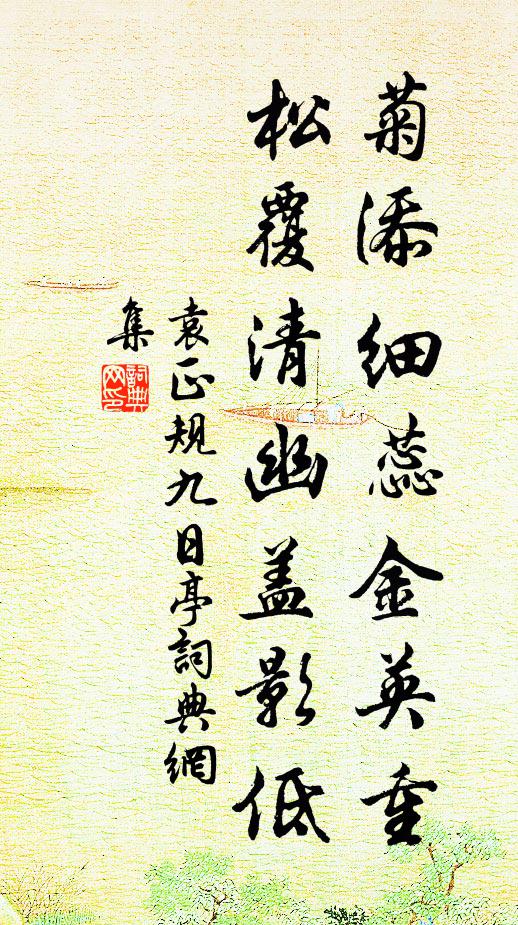 菊添细蕊金英重
松覆清幽盖影低
袁正规九日亭詞典網
集
詞典
网印